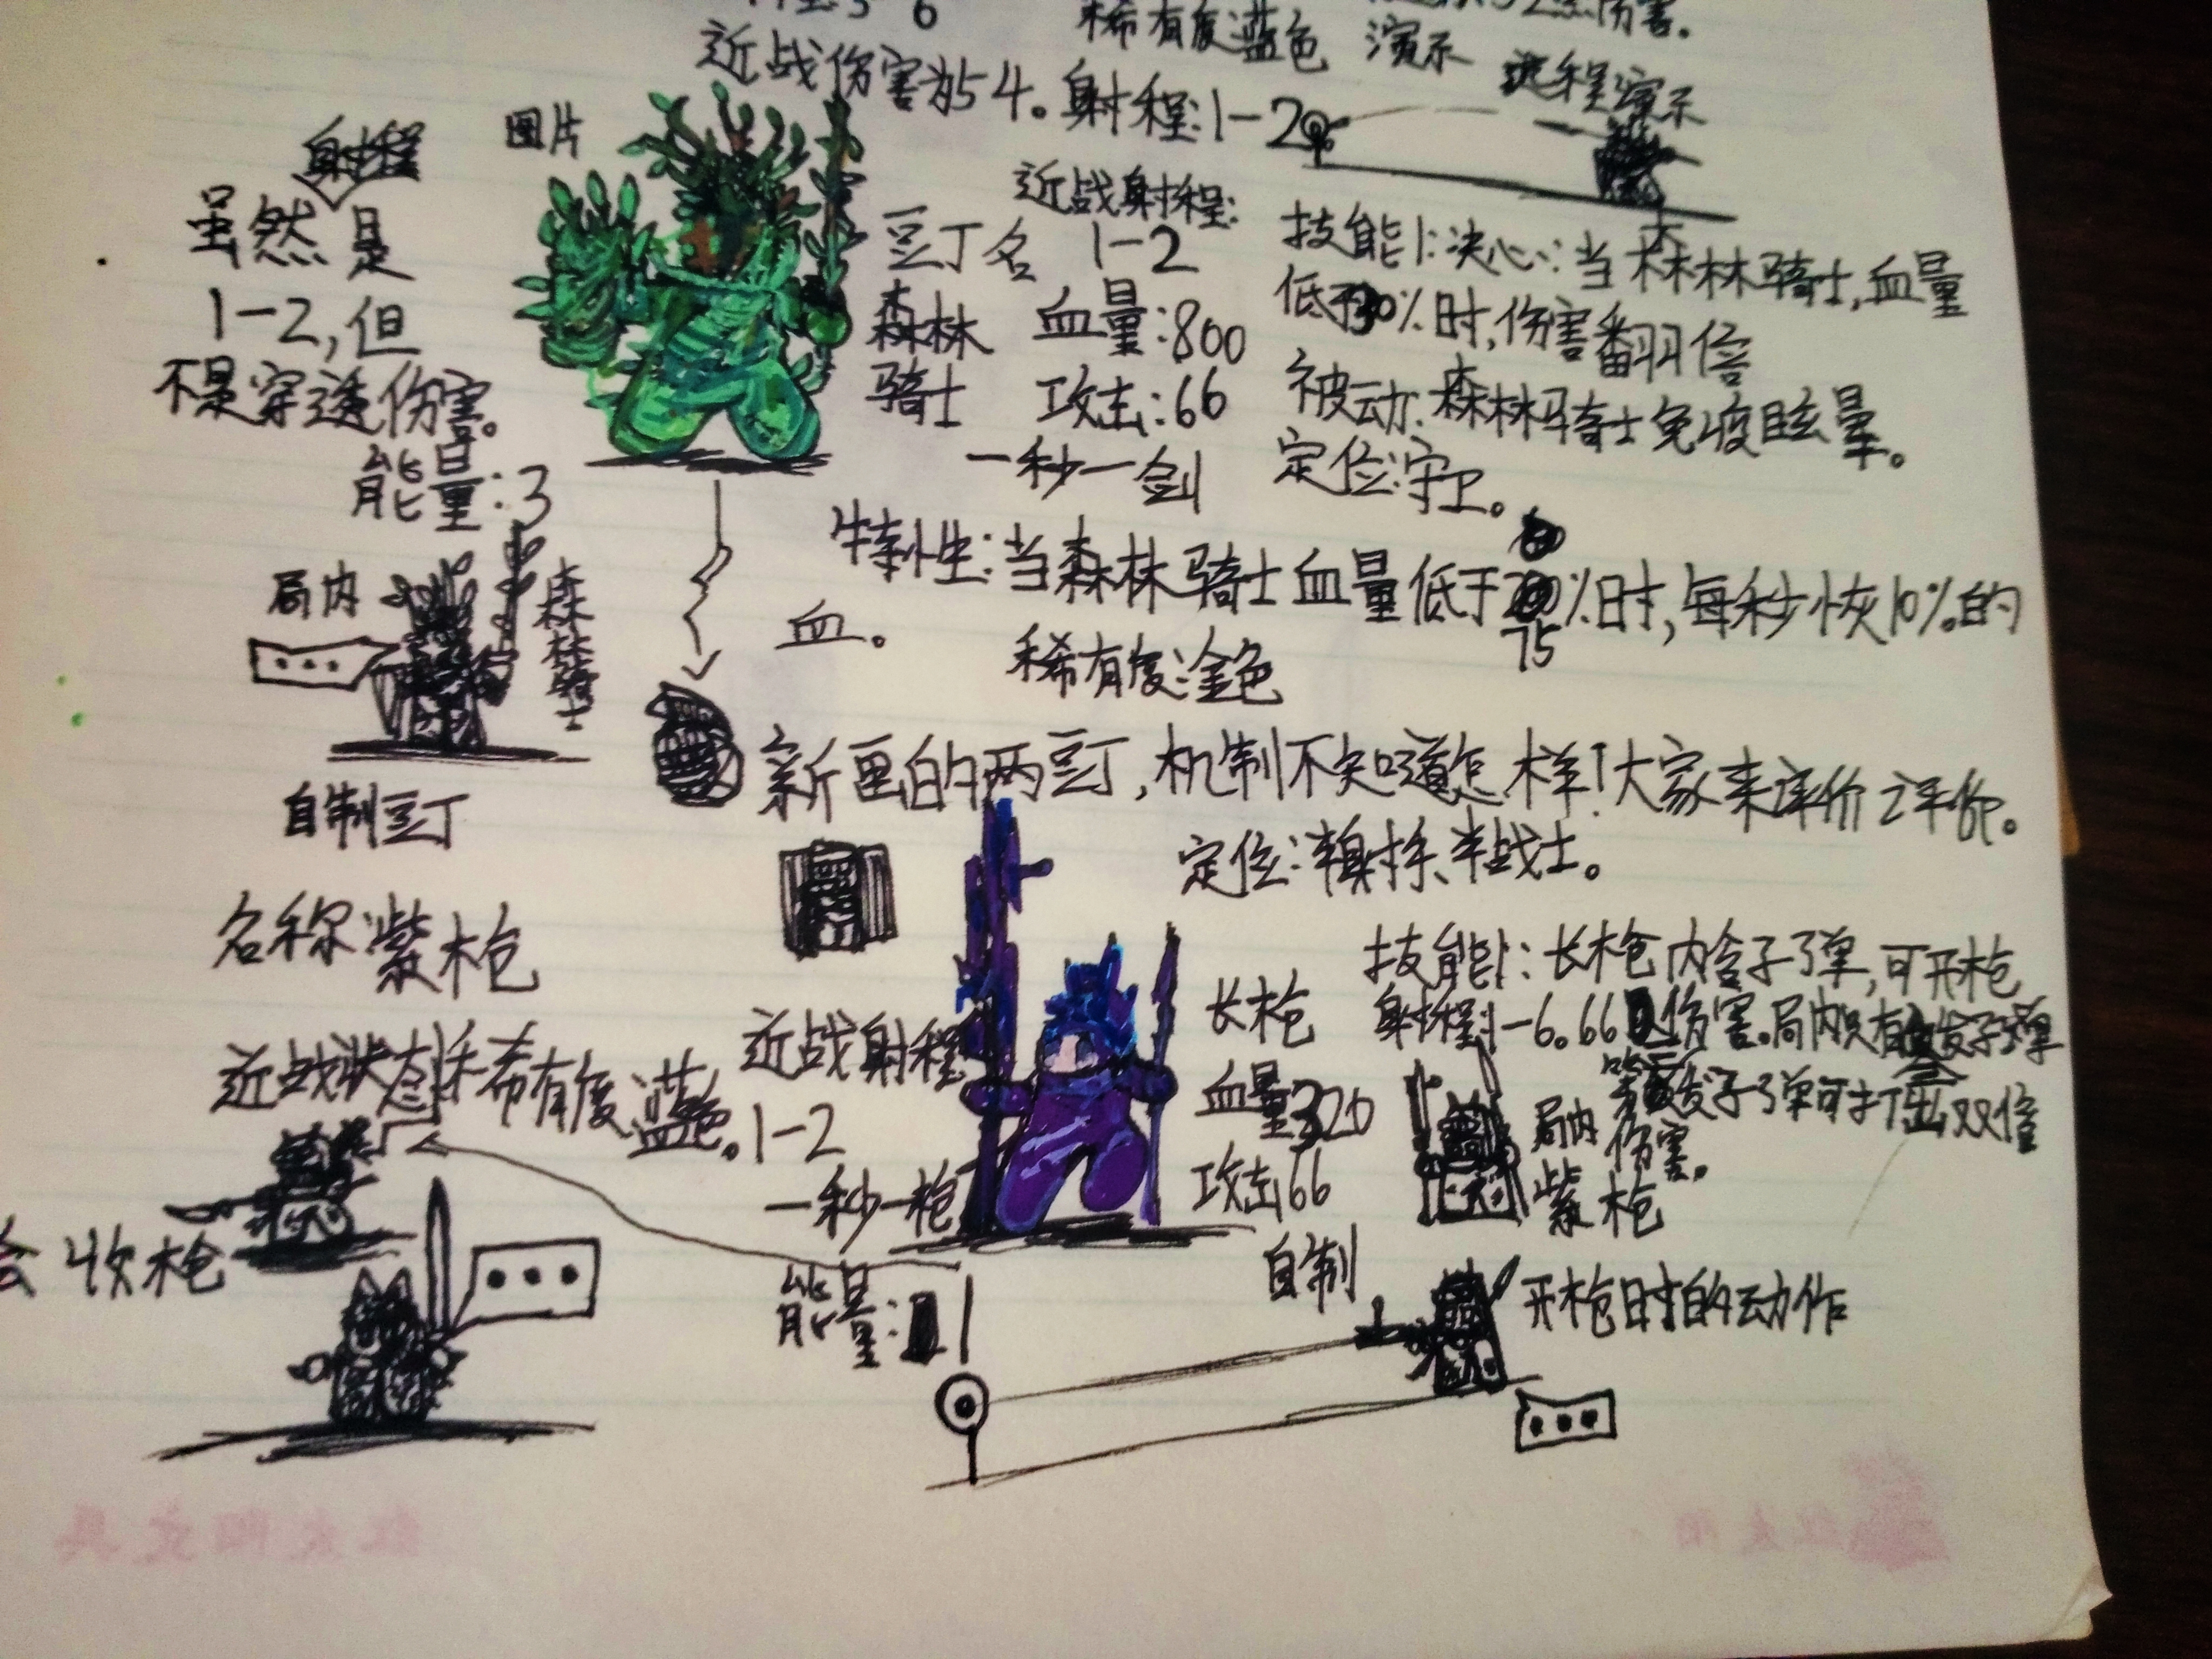 近战伤害为54。射程:1-2
稀有度蓝色 演示
远程演示
射程
图片
虽然是
1-2,但
不是穿透伤害。
能量:3
近战射程:
1-2
豆丁名
森林
骑士
血量:800
攻击:66
一秒一剑
技能1:决心:当森林骑士,血量
低于30%时,伤害翻倍
被动:森林骑士免疫眩晕。
定位:守卫。
特性:当森林骑士血量低于75%时,每秒恢10%的
血。
稀有度:金色
局内
森林骑士
新画的两豆丁,机制不知道怎样!大家来评价评价。
自制豆丁
定位:半射手、半战士。
名称:紫枪
技能1:长枪内含子弹,可开枪
射程1-6.66伤害。局内只有三发子弹
第三发子弹可打出双倍
伤害。
长枪
血量320
攻击66
近战射程
1-2
一秒一枪
近战状态
稀有度:蓝色。
局内
紫枪
会收枪
能量:1
自制
开枪时的动作
红太阳文具
红太阳